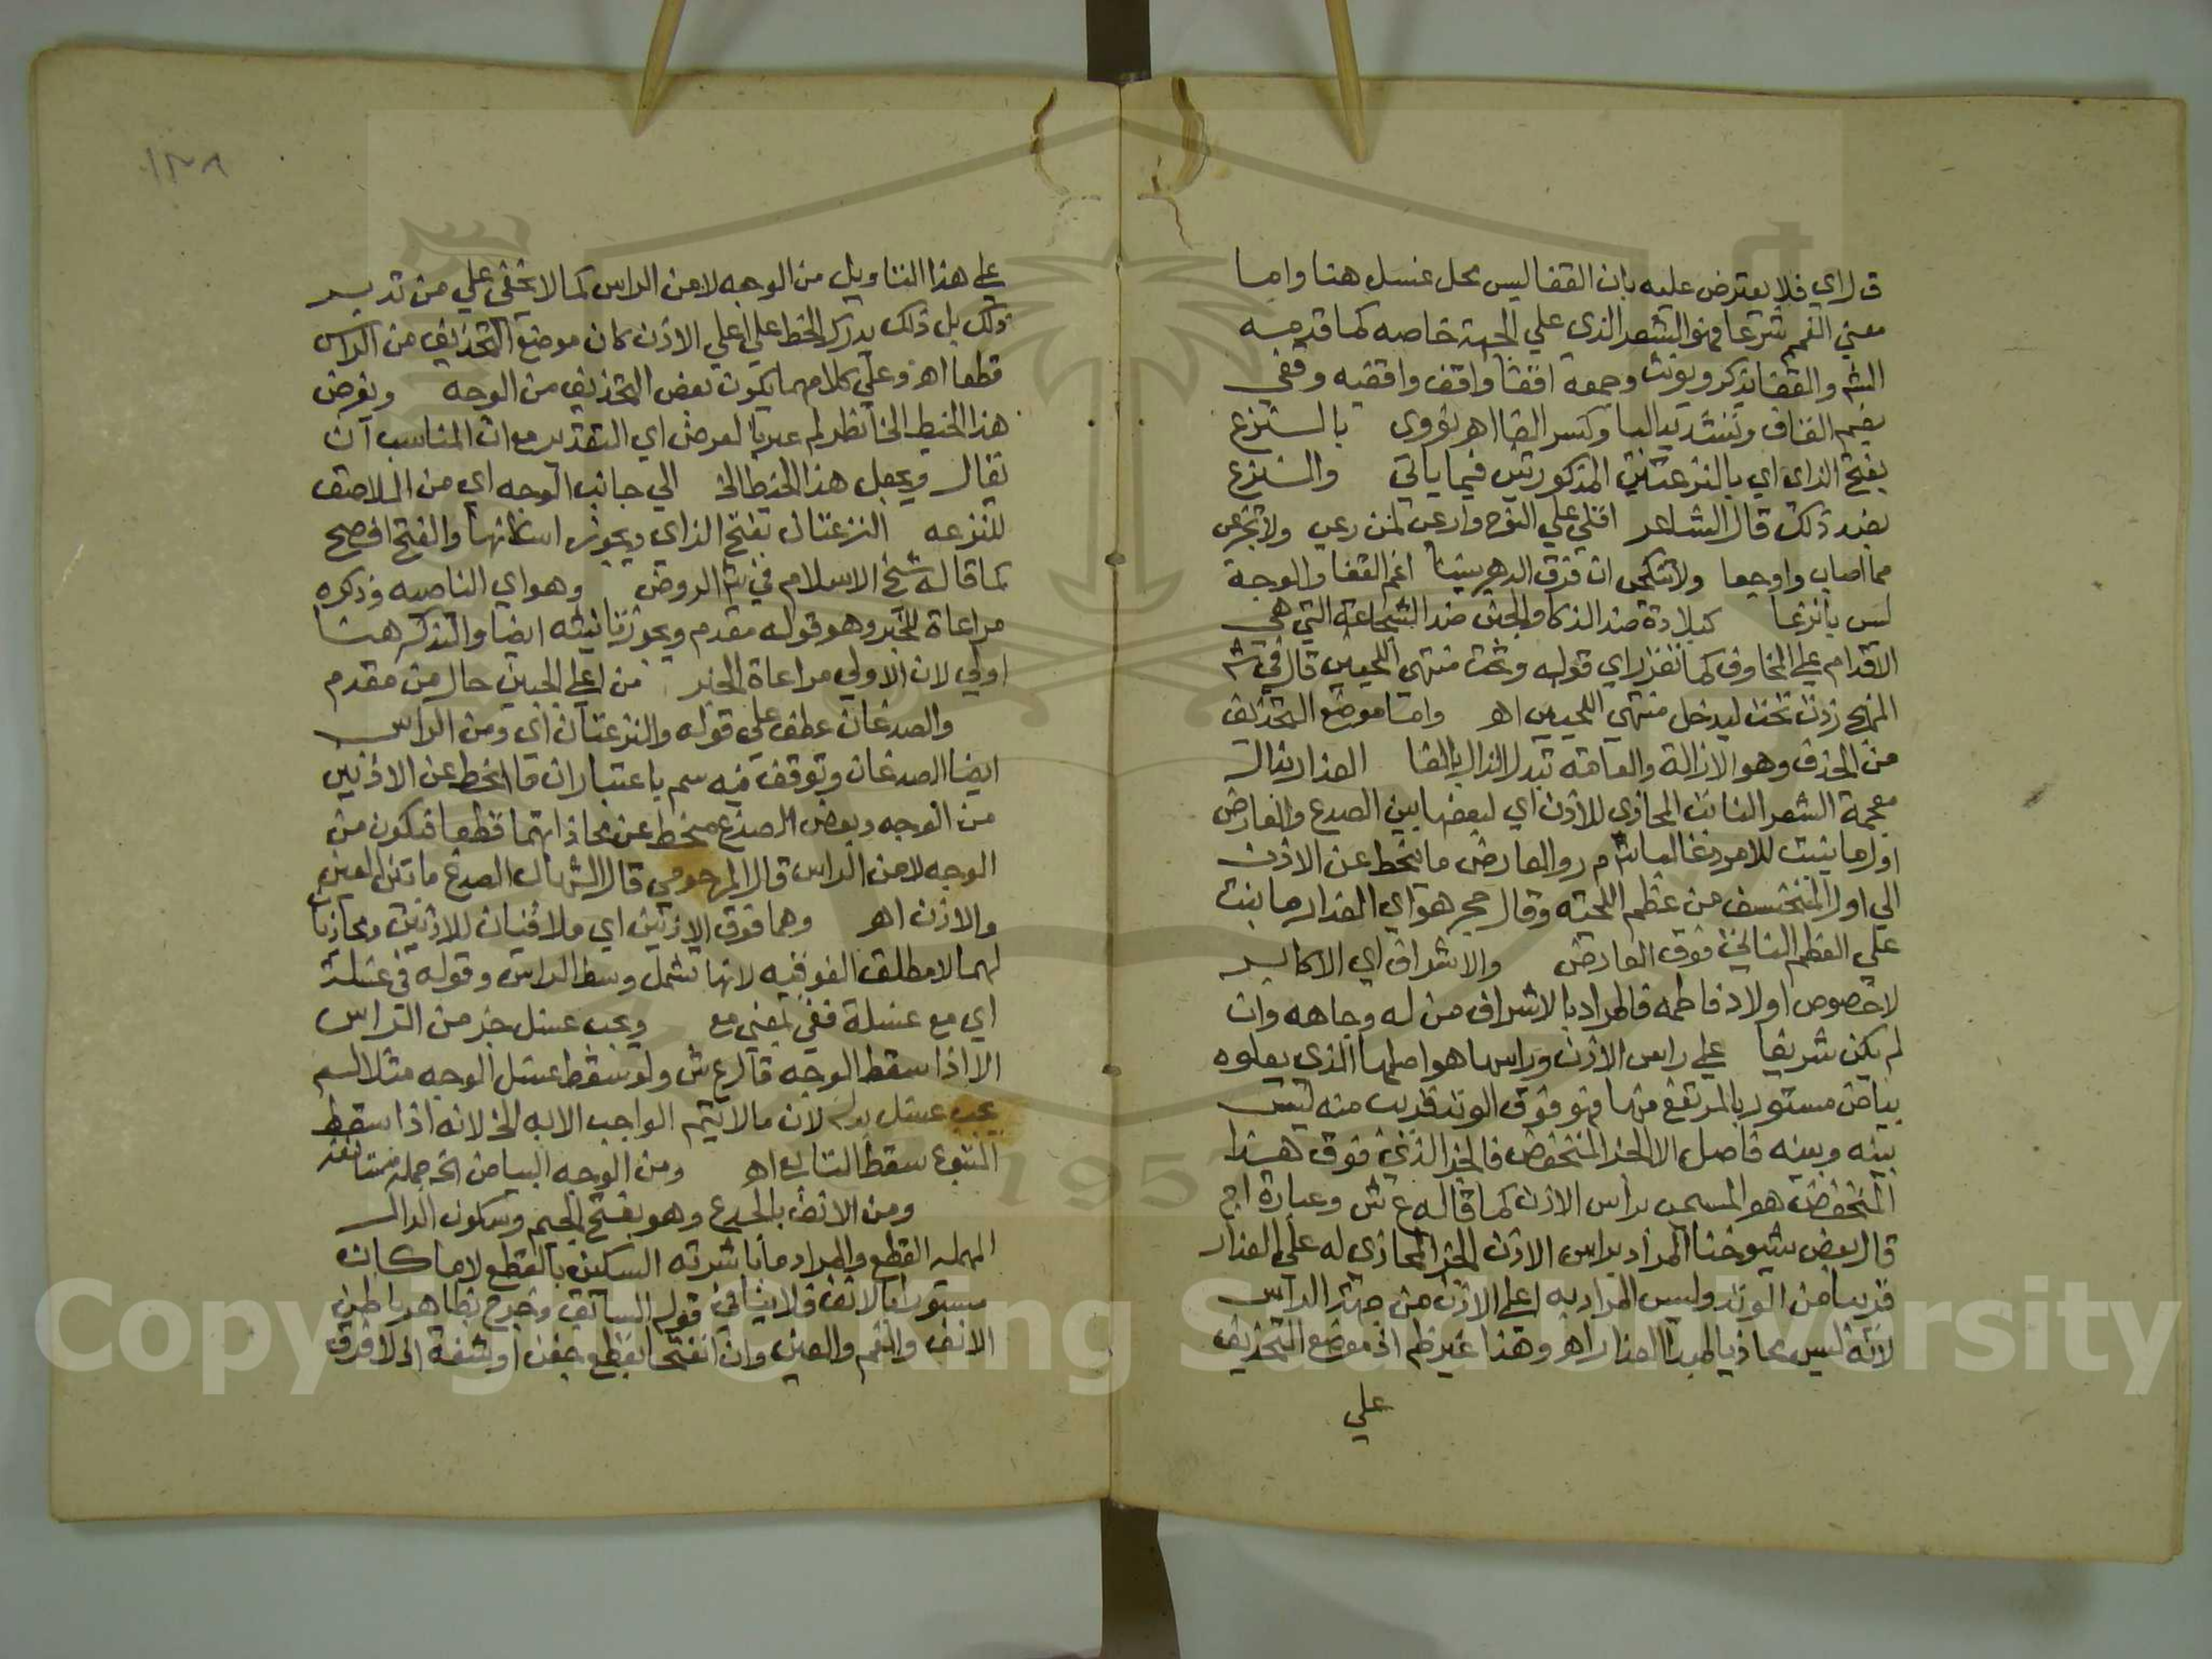 ق ل اي فلا يعترض عليه بان القفا ليس محل غسل هنا واما
معني الغمم شرعا فهو الشعر الذي علي الجبهة خاصه كما قدمه
الش والقفا يذكر ويونث وجمعه اقفا واقف واقفيه وقفي
بضم القاف وتشديد اليا وكسر الفا اهر نووي بالنزع
بفتح الزاي اي بالنزعتين المذكورتين فيما ياتي والنزع
بضد ذلك قال الشاعر اقلي علي النوح وارعي لمن رعي ولا تجزعي
مما اصاب واوجعا ولا تنكحي ان فرق الدهر بيننا اغم القفا والوجه
ليس بانزعا كبلادة ضد الذكا والجبن ضد الشجاعة التي هي
الاقدام علي المخاوف كما تقرر اي قوله وتحت منتهي اللحيين قال في ش
المنهج زدت تحت ليدخل منتهي اللحيين اهر واما موضع التحذيف
من الحذف وهو الازالة والعامة تبدل الذال بالفا العذار بذال
معجمة الشعر النابت المحاذي للاذن اي لبعضها بين الصدع والعارض
اول ما ينبت للامرد غالبا ش م ر والعارض ما ينحط عن الاذن
الي اول المنخسف من عظم اللحيه وقال حج هو اي العذار ما نبت
علي العظم الناتئ فوق العارض والاشراف اي الاكابر
لا خصوص اولاد فاطمه فالمراد بالاشراف من له وجاهه وان
لم يكن شريفا علي راس الاذن وراسها هو اصلها الذي يعلوه
بياض مستور بالمرتفع منها فهو فوق الوتد قريب منه ليس
بينه وبينه فاصل الا الجز المنخفض فالجز الذي فوق هذا
المنخفض هو المسمى براس الاذن كما قاله ع ش وعبارة اج
قال بعض شيوخنا المراد براس الاذن الجز المحاذي له علي العذار
قريبا من الوتد وليس المراد به اعلي الاذن من جهة الراس
لانه ليس محاذيا لمبدا العذار اهر وهذا غير ظم اذ موضع التحذيف
علي
١٣٨
علي هذا التاويل من الوجه لا من الراس كما لا يخفي علي من تدبر
ذلك بل ذلك يدرك الخط علي اعلي الاذن كان موضع التحذيف من الراس
قطعا اهر وعلي كلامهما يكون بعض التحذيف من الوجه ويفرض
هذا الخيط الخ انظر لم عبر با لعرض اي التقدير مع ان المناسب ان
يقال ويجعل هذا الخيط الخ الي جانب الوجه اي من الملاصق
للنزعه النزعتان بفتح الزاي ويجوز اسكانها والفتح افصح
كما قاله شيخ الاسلام في ش الروض وهو اي الناصيه وذكره
مراعاة للخبر وهو قوله مقدم ويجوز تانيثه ايضا والتذكير هنا
اولي لان الاولي مراعاة الخبر من اعلي الجبين حال من مقدم
والصدغان عطف علي قوله والنزعتان اي ومن الراس
ايضا الصدغان وتوقف فيه سم باعتبار ان ما انحط عن الاذنين
من الوجه وبعض الصدغ منحط عن محاذاتهما قطعا فيكون من
الوجه لا من الراس قال المرحومي قال الشهاب الصدغ ما بين العين
والاذن اهر وهما فوق الاذنين اي ملاقيان للاذنين ومحاذيا
لهما لا مطلق الفوقيه لانها تشمل وسط الراس وقوله في غسله
اي مع غسلة ففي بمعني مع ويجب غسل جز من الراس
الا اذا سقط الوجه قال ع ش ولو سقط غسل الوجه مثلا لم
يجب غسل لان ما لا يتم الواجب الا به الخ لانه اذا سقط
المتبوع سقط التابع اهر ومن الوجه البياض الخ جملة مستانفه
ومن الانف بالجدع وهو بفتح الجيم وسكون الدال
المهملة القطع والمراد ما باشرته السكين بالقطع لا ما كان
مستورا بالانف فلا ينافي قوله السابق وخرج بظاهر باطن
الانف والفم والعين وان انفتحا بقطع جفن او شفة اذ لا فرق